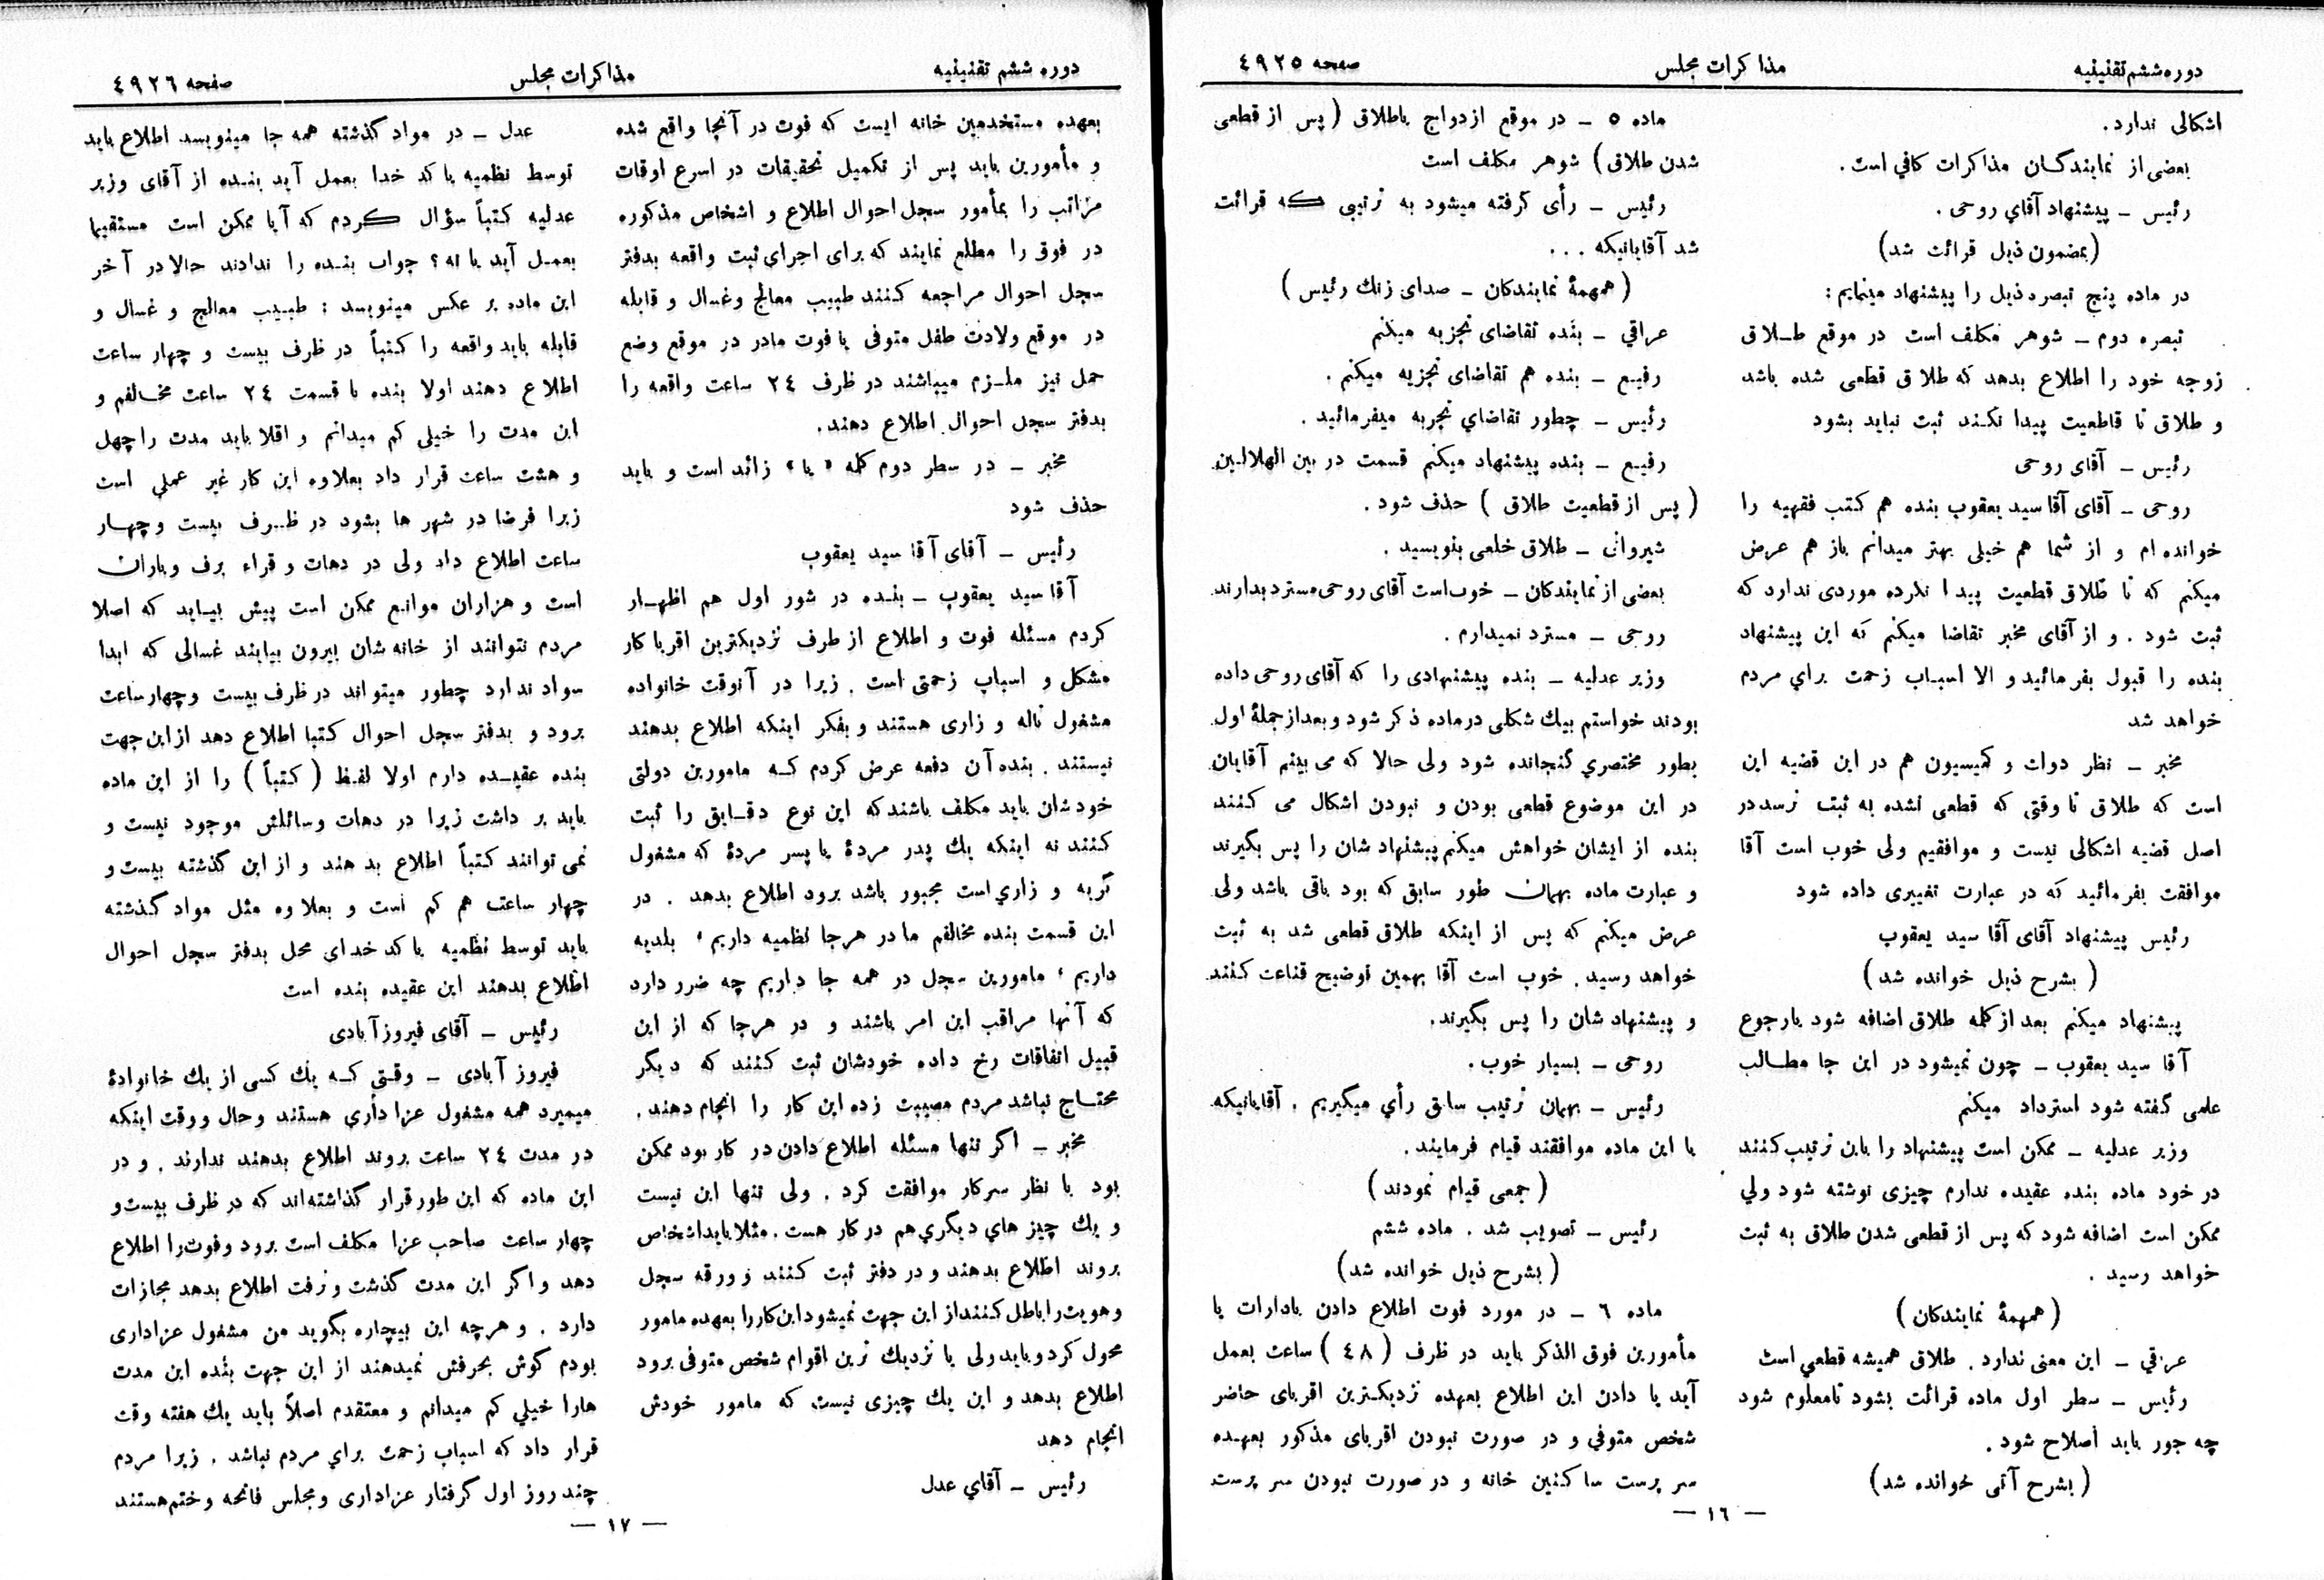 دوره ششم تقنینیه
مذاکرات مجلس
صفحه ٤٩٢٥
اشکالی ندارد.
بعضی از نمایندگان مذاکرات کافي است.
رئیس ــ پیشنهاد آقاي روحی.
(بمضمون ذیل قرائت شد)
در ماده پنج تبصره ذیل را پیشنهاد مینمایم:
تبصره دوم ــ شوهر مکلف است در موقع طـلاق
زوجه خود را اطلاع بدهد که طلاق قطعی شده باشد
و طلاق تا قاطعیت پیدا نکند ثبت نباید بشود
رئیس ــ آقای روحی
روحی ــ آقای آقا سید یعقوب بنده هم کتب فقهیه را
خوانده ام و از شما هم خیلی بهتر میدانم باز هم عرض
میکنم که تا طلاق قطعیت پیدا نکرده موردی ندارد که
ثبت شود . و از آقای مخبر تقاضا میکنم که این پیشنهاد
بنده را قبول بفرمائید و الا اسباب زحمت براي مردم
خواهد شد
مخبر ــ نظر دولت و کمیسیون هم در این قضیه این
است که طلاق تا وقتی که قطعی نشده به ثبت نرسد در
اصل قضیه اشکالی نیست و موافقیم ولی خوب است آقا
موافقت بفرمائید که در عبارت تغییری داده شود
رئیس پیشنهاد آقای آقا سید یعقوب
( بشرح ذیل خوانده شد )
پیشنهاد میکنم بعد از کلمه طلاق اضافه شود یا رجوع
آقا سید یعقوب ــ چون نمیشود در این جا مطـالب
علمی گفته شود استرداد میکنم
وزیر عدلیه ــ ممکن است پیشنهاد را باین ترتیب کنند
در خود ماده بنده عقیده ندارم چیزی نوشته شود ولي
ممکن است اضافه شود که پس از قطعی شدن طلاق به ثبت
خواهد رسید .
( همهمهٔ نمایندکان )
عراقي ــ این معنی ندارد. طلاق همیشه قطعي است
رئیس ــ سطر اول ماده قرائت بشود تا معلوم شود
چه جور باید اصلاح شود.
( بشرح آتی خوانده شد )
ماده ٥ ــ در موقع ازدواج یا طلاق ( پس از قطعی
شدن طلاق ) شوهر مکلف است
رئیس ــ رأی گرفته میشود به ترتیبی که قرائت
شد آقایانیکه ...
( همهمهٔ نمایندکان ــ صدای زنك رئیس )
عراقي ــ بنده تقاضای تجزیه میکنم
رفیع ــ بنده هم تقاضای تجزیه میکنم .
رئیس ــ چطور تقاضاي تجزیه میفرمائید .
رفیع ــ بنده پیشنهاد میکنم قسمت در بین الهلالین
( پس از قطعیت طلاق ) حذف شود .
شیروانی ــ طلاق خلعی بنویسید .
بعضی از نمایندکان ــ خوب است آقای روحی مسترد بدارند
روحی ــ مسترد نمیدارم .
وزیر عدلیه ــ بنده پیشنهادی را که آقای روحی داده
بودند خواستم بیك شکلی در ماده ذکر شود و بعد از جملهٔ اول
بطور مختصري گنجانده شود ولی حالا که می بینم آقایان
در این موضوع قطعی بودن و نبودن اشکال می کنند
بنده از ایشان خواهش میکنم پیشنهاد شان را پس بگیرند
و عبارت ماده بهمان طور سابق که بود باقی باشد ولی
عرض میکنم که پس از اینکه طلاق قطعی شد به ثبت
خواهد رسید . خوب است آقا بهمین توضیح قناعت کنند
و پیشنهاد شان را پس بگیرند.
روحی ــ بسیار خوب .
رئیس ــ بهمان ترتیب سابق رأي میگیریم . آقایانیکه
با این ماده موافقند قیام فرمایند .
( جمعی قیام نمودند )
رئیس ــ تصویب شد . ماده ششم
( بشرح ذیل خوانده شد )
ماده ٦ ــ در مورد فوت اطلاع دادن بادارات یا
مأمورین فوق الذکر باید در ظرف ( ٤٨ ) ساعت بعمل
آید یا دادن این اطلاع بعهده نزدیکترین اقربای حاضر
شخص متوفي و در صورت نبودن اقربای مذکور بعهده
سر پرست ساکنین خانه و در صورت نبودن سر پرست
— ١٦ —
دوره ششم تقنینیه
مذاکرات مجلس
صفحه ٤٩٢٦
بعهده مستخدمین خانه ایست که فوت در آنجا واقع شده
و مأمورین باید پس از تکمیل تحقیقات در اسرع اوقات
مراتب را بمأمور سجل احوال اطلاع و اشخاص مذکوره
در فوق را مطلع نمایند که برای اجرای ثبت واقعه بدفتر
سجل احوال مراجعه کنند طبیب معالج وغسال و قابله
در موقع ولادت طفل متوفی یا فوت مادر در موقع وضع
حمل نیز ملـزم میباشند در ظرف ٢٤ ساعت واقعه را
بدفتر سجل احوال اطلاع دهند.
مخبر ــ در سطر دوم کلمه « یا » زائد است و باید
حذف شود
رئیس ــ آقای آقا سید یعقوب
آقا سید یعقوب ــ بنده در شور اول هم اظهـار
کردم مسئله فوت و اطلاع از طرف نزدیکترین اقربا کار
مشکل و اسباب زحمتی است . زیرا در آنوقت خانواده
مشغول ناله و زاری هستند و بفکر اینکه اطلاع بدهند
نیستند . بنده آن دفعه عرض کردم که مامورین دولتی
خودشان باید مکلف باشند که این نوع دقـایق را ثبت
کنند نه اینکه یك پدر مردهٔ یا پسر مردهٔ که مشغول
گریه و زاري است مجبور باشد برود اطلاع بدهد . در
این قسمت بنده مخالفم ما در هر جا نظمیه داریم ، بلدیه
داریم ، مامورین سجل در همه جا داریم چه ضرر دارد
که آنها مراقب این امر باشند و در هر جا که از این
قبیل اتفاقات رخ داده خودشان ثبت کنند که دیگر
محتـاج نباشد مردم مصیبت زده این کار را انجام دهند.
مخبر ــ اگر تنها مسئله اطلاع دادن در کار بود ممکن
بود با نظر سرکار موافقت کرد . ولی تنها این نیست
و یك چیز هاي دیگري هم در کار هست. مثلا باید اشخاص
بروند اطلاع بدهند و در دفتر ثبت کنند و ورقه سجل
و هویت را باطل کنند از این جهت نمیشود این کار را بعهده مامور
محول کرد و باید ولی یا نزدیك ترین اقوام شخص متوفی برود
اطلاع بدهد و این یك چیزی نیست که مامور خودش
انجام دهد
رئیس ــ آقاي عدل
عدل ــ در مواد گذشته همه جا مینویسد اطلاع باید
توسط نظمیه یا کد خدا بعمل آید بنده از آقای وزیر
عدلیه کتباً سؤال کردم که آیا ممکن است مستقیما
بعمـل آید یا نه ؟ جواب بنـده را ندادند حالا در آخر
این ماده بر عکس مینویسد : طبیب معالج و غسال و
قابله باید واقعه را کتباً در ظرف بیست و چهار ساعت
اطلاع دهند اولا بنده با قسمت ٢٤ ساعت مخـالفم و
این مدت را خیلی کم میدانم و اقلا باید مدت را چهل
و هشت ساعت قرار داد بعلاوه این کار غیر عملي است
زیرا فرضا در شهر ها بشود در ظـرف بیست و چهـار
ساعت اطلاع داد ولی در دهات و قراء برف و باران
است و هزاران موانع ممکن است پیش بیـاید که اصلا
مردم نتوانند از خانه شان بیرون بیایند غسالی که ابدا
سواد ندارد چطور میتواند در ظرف بیست و چهار ساعت
برود و بدفتر سجل احوال کتبا اطلاع دهد از این جهت
بنده عقیـده دارم اولا لفظ ( کتباً ) را از این ماده
باید بر داشت زیرا در دهات وسائلش موجود نیست و
نمی توانند کتباً اطلاع بدهند و از این گذشته بیست و
چهار ساعت هم کم است و بعلاوه مثل مواد گذشته
باید توسط نظمیه یا کد خدای محل بدفتر سجل احوال
اطلاع بدهند این عقیده بنده است
رئیس ــ آقای فیروز آبادی
فیروز آبادی ــ وقـتی کـه یك کسی از یك خانوادهٔ
میمیرد همه مشغول عزا داری هستند و حال و وقت اینکه
در مدت ٢٤ ساعت بروند اطلاع بدهند ندارند . و در
این ماده که این طور قرار گذاشته‌اند که در ظرف بیست و
چهار ساعت صاحب عزا مکلف است برود و فوت را اطلاع
دهد و اگر این مدت گذشت و نرفت اطلاع بدهد مجازات
دارد . و هر چه این بیچاره بگوید من مشغول عزاداری
بودم گوش بحرفش نمیدهند از این جهت بنده این مدت
هارا خیلي کم میدانم و معتقدم اصلاً باید یك هفته وقت
قرار داد که اسباب زحمت براي مردم نباشد . زیرا مردم
چند روز اول گرفتار عزاداری و مجلس فاتحه و ختم هستند
— ١٧ —